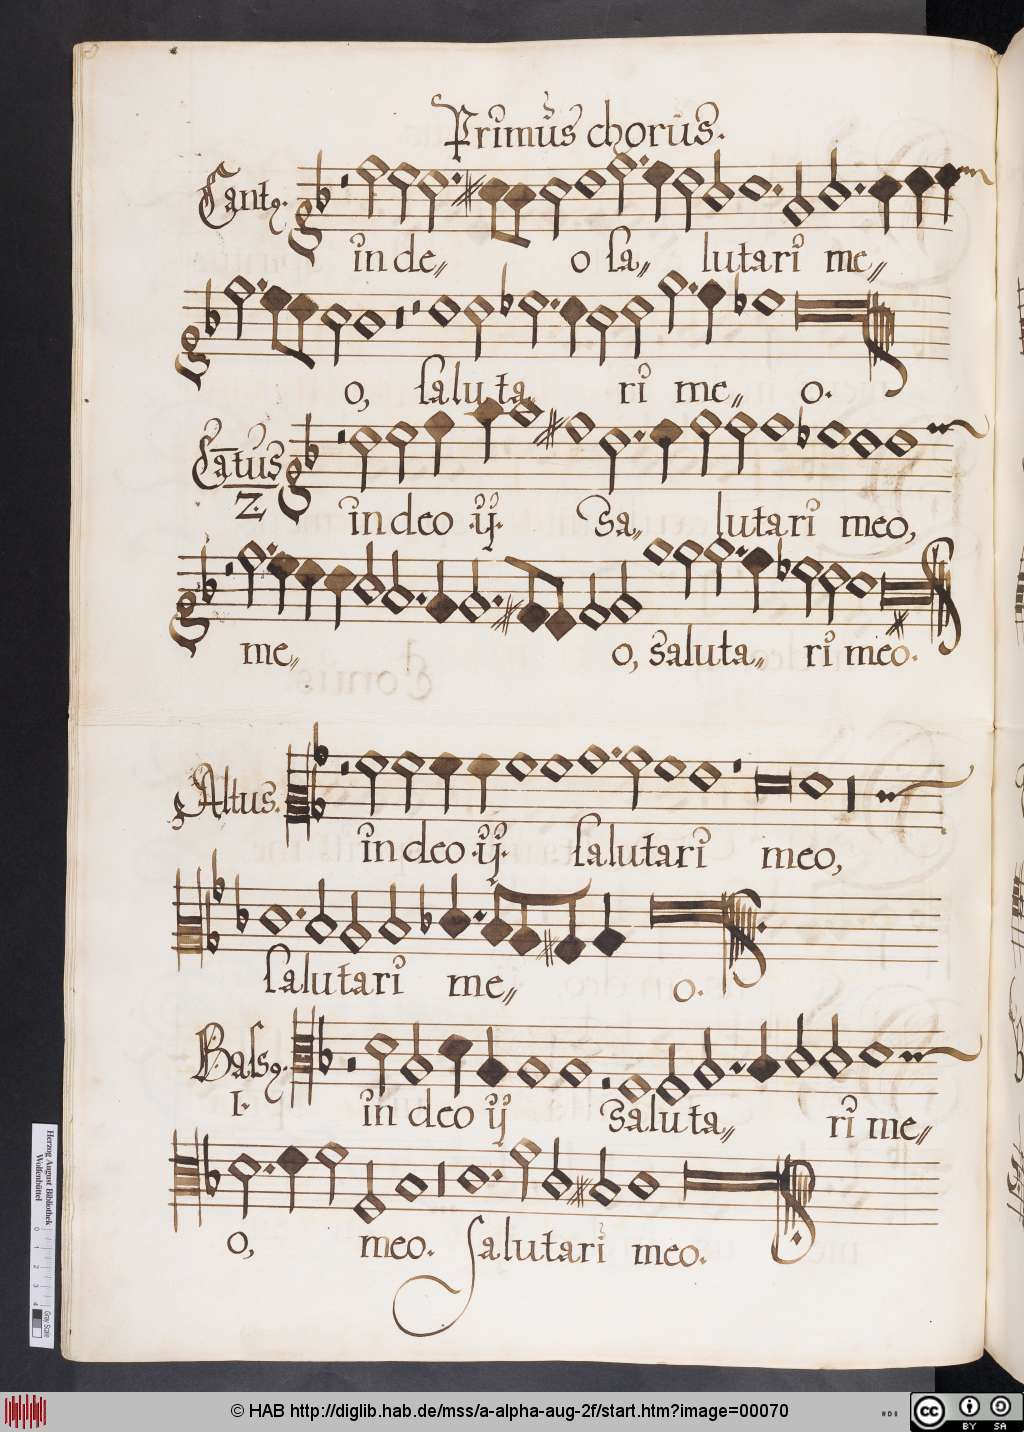 Primus chorus.
Cantꝯ.
in de〃 o sa〃 lutari me〃
o, saluta〃 ri me〃 o.
Cātus
2.
in deo ·ij· Sa〃 lutari meo,
me〃 o, saluta〃 ri meo.
Altus.
in deo ·ij· salutari meo,
salutari me〃 o.
Bassꝯ.
I.
in deo ij saluta〃 ri me〃
o, meo. Salutari meo.
Herzog August Bibliothek
Wolfenbüttel
0 1 2 3 4
Gray Scale
© HAB http://diglib.hab.de/mss/a-alpha-aug-2f/start.htm?image=00070
cc BY SA